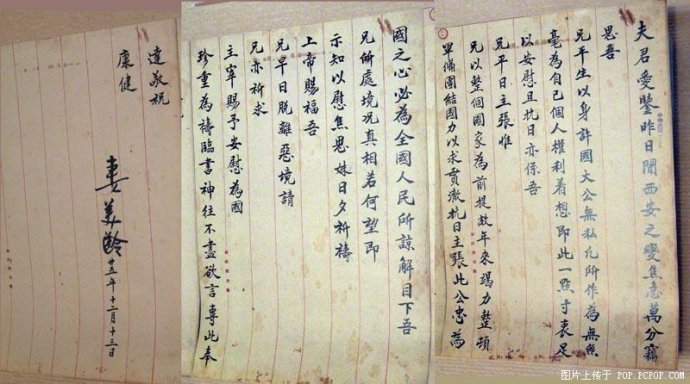 夫君愛鑒昨日聞西安之變焦急萬分竊
思吾
兄平生以身許國大公無私凡所作為無絲
毫為自己個人權利着想即此一點寸衷足
以安慰且抗日亦係吾
兄平日主張惟
兄以整個國家為前提故年來竭力整頓
軍備團結國力以求貫澈抗日主張此公忠為
國之心必為全國人民所諒解目下吾
兄所處境況真相若何望即
示知以慰焦思妹日夕祈禱
上帝賜福吾
兄早日脫離惡境請
兄亦祈求
主宰賜予安慰為國
珍重為禱臨書神往不盡欲言專此奉
達敬祝
康健
妻美齡
廿五年十二月十三日
图片上传于 POP.PCPOP.COM